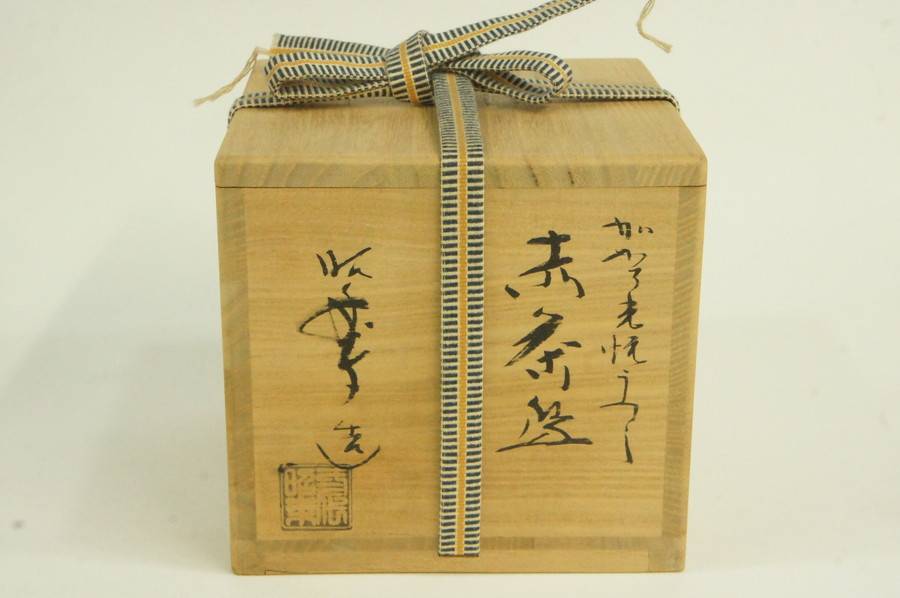 加賀光悦うつし
赤茶盌
昭楽造